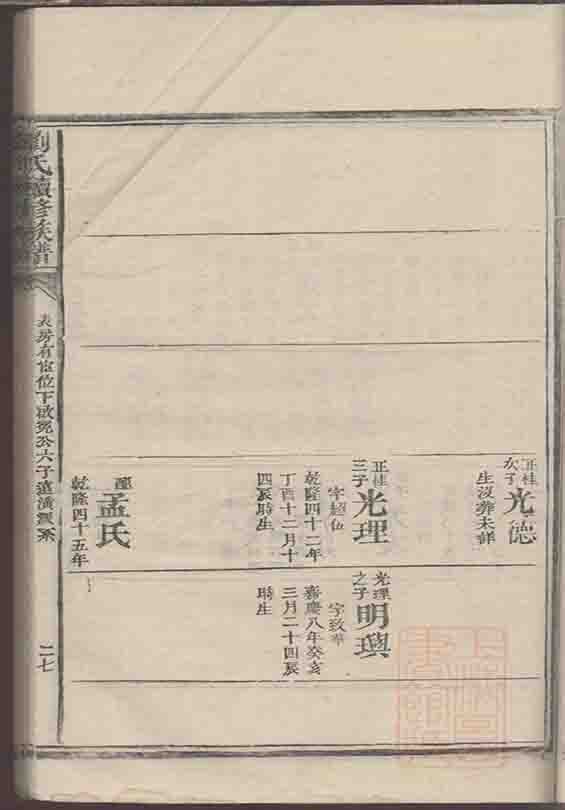 正桂
次子
光德
生沒葬未詳
正桂
三子
光理
乾隆四十二年
丁酉十二月十
四辰時生
配
孟氏
乾隆四十五年
光理
之子
明璵
嘉慶八年癸亥
三月二十四辰
時生
劉氏續修族譜
房有
位下啟
公六子遠
派系
二七